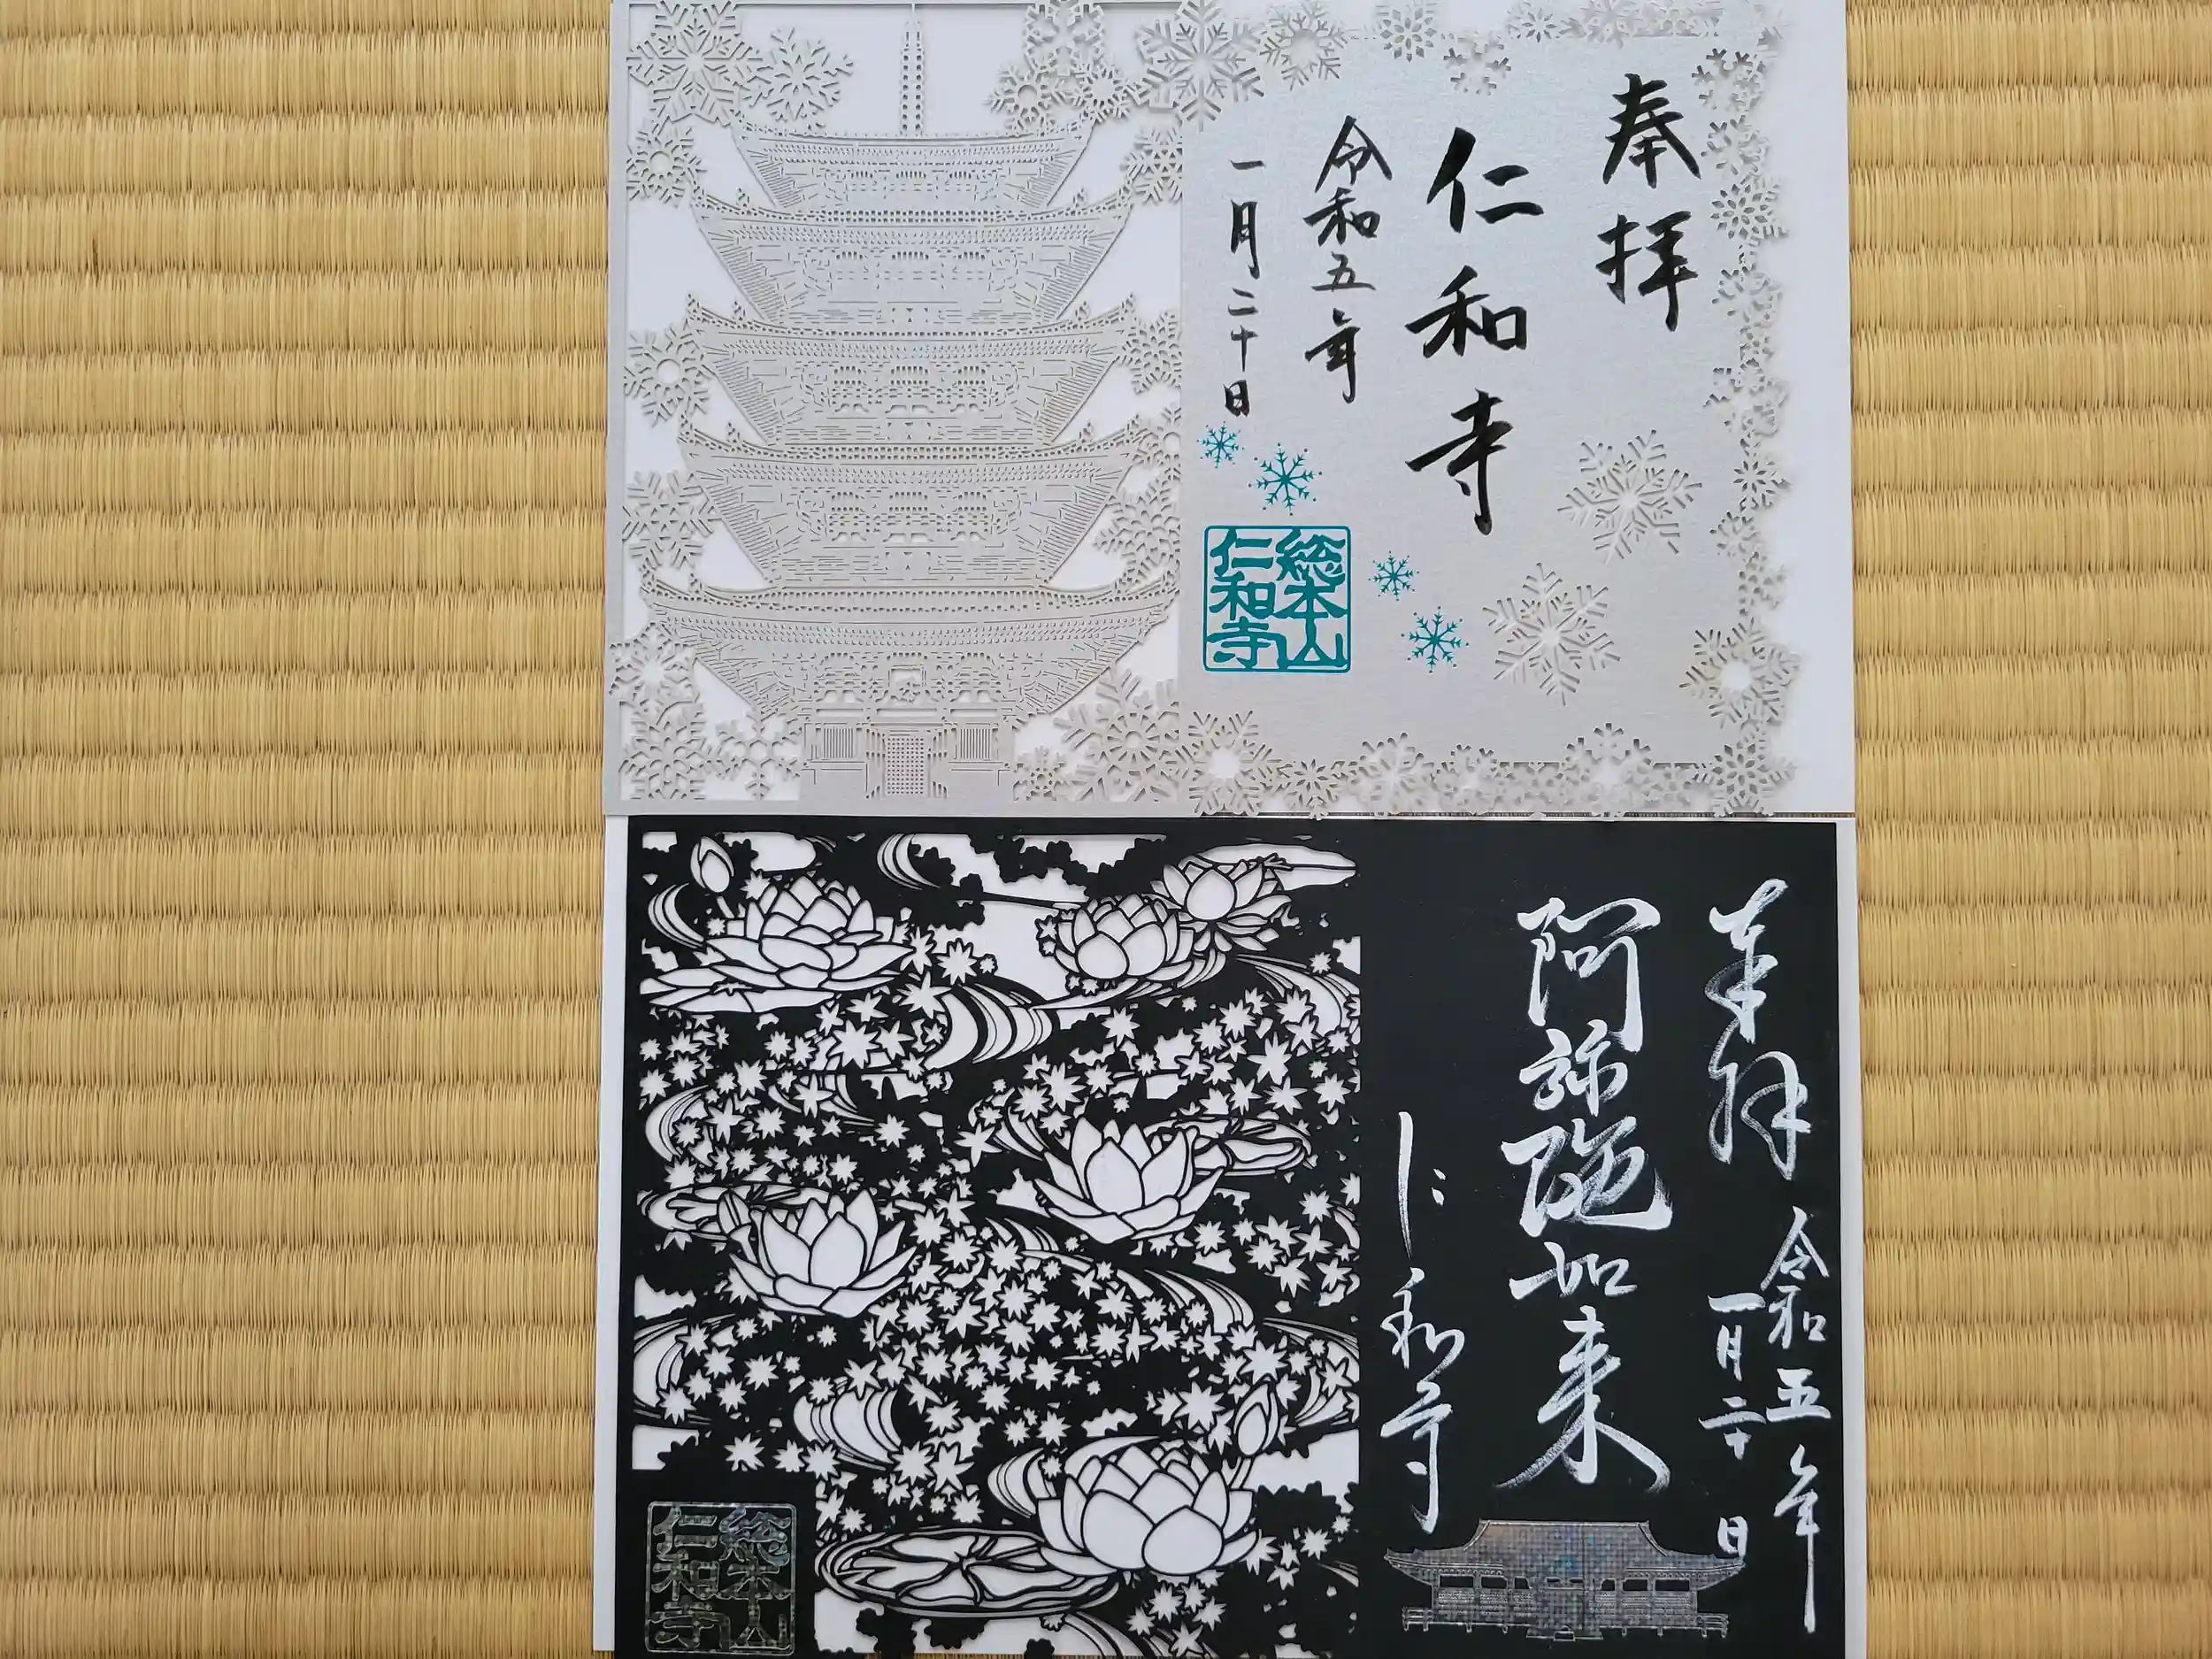 奉拝
仁和寺
令和五年
一月二十日
総本山
仁和寺
奉拝
令和五年
一月二十日
阿弥陀如来
仁和寺
総本山
仁和寺